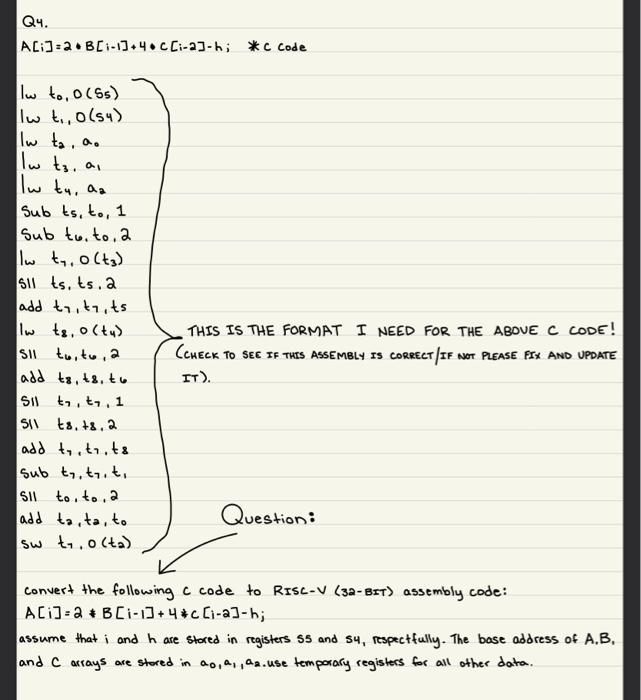 Q4.
A[i]=2*B[i-1]+4*C[i-2]-h; *C code
lw t0, 0(S5)
lw t1, 0(s4)
lw t2, a0
lw t3, a1
lw t4, a2
Sub t5, t0, 1
Sub t6, t0, 2
lw t7, 0(t3)
Sll t5, t5, 2
add t7, t7, t5
lw t8, 0(t4)
Sll t6, t6, 2
add t8, t8, t6
Sll t7, t7, 1
Sll t8, t8, 2
add t7, t7, t8
Sub t7, t7, t1
Sll t0, t0, 2
add t2, t2, t0
sw t7, 0(t2)
THIS IS THE FORMAT I NEED FOR THE ABOVE C CODE!
(CHECK TO SEE IF THIS ASSEMBLY IS CORRECT/IF NOT PLEASE FIX AND UPDATE
IT).
Question:
convert the following c code to RISC-V (32-BIT) assembly code:
A[i]=2*B[i-1]+4*c[i-2]-h;
assume that i and h are stored in registers S5 and S4, respectfully. The base address of A,B,
and C arrays are stored in a0,a1,a2.use temporary registers for all other data.